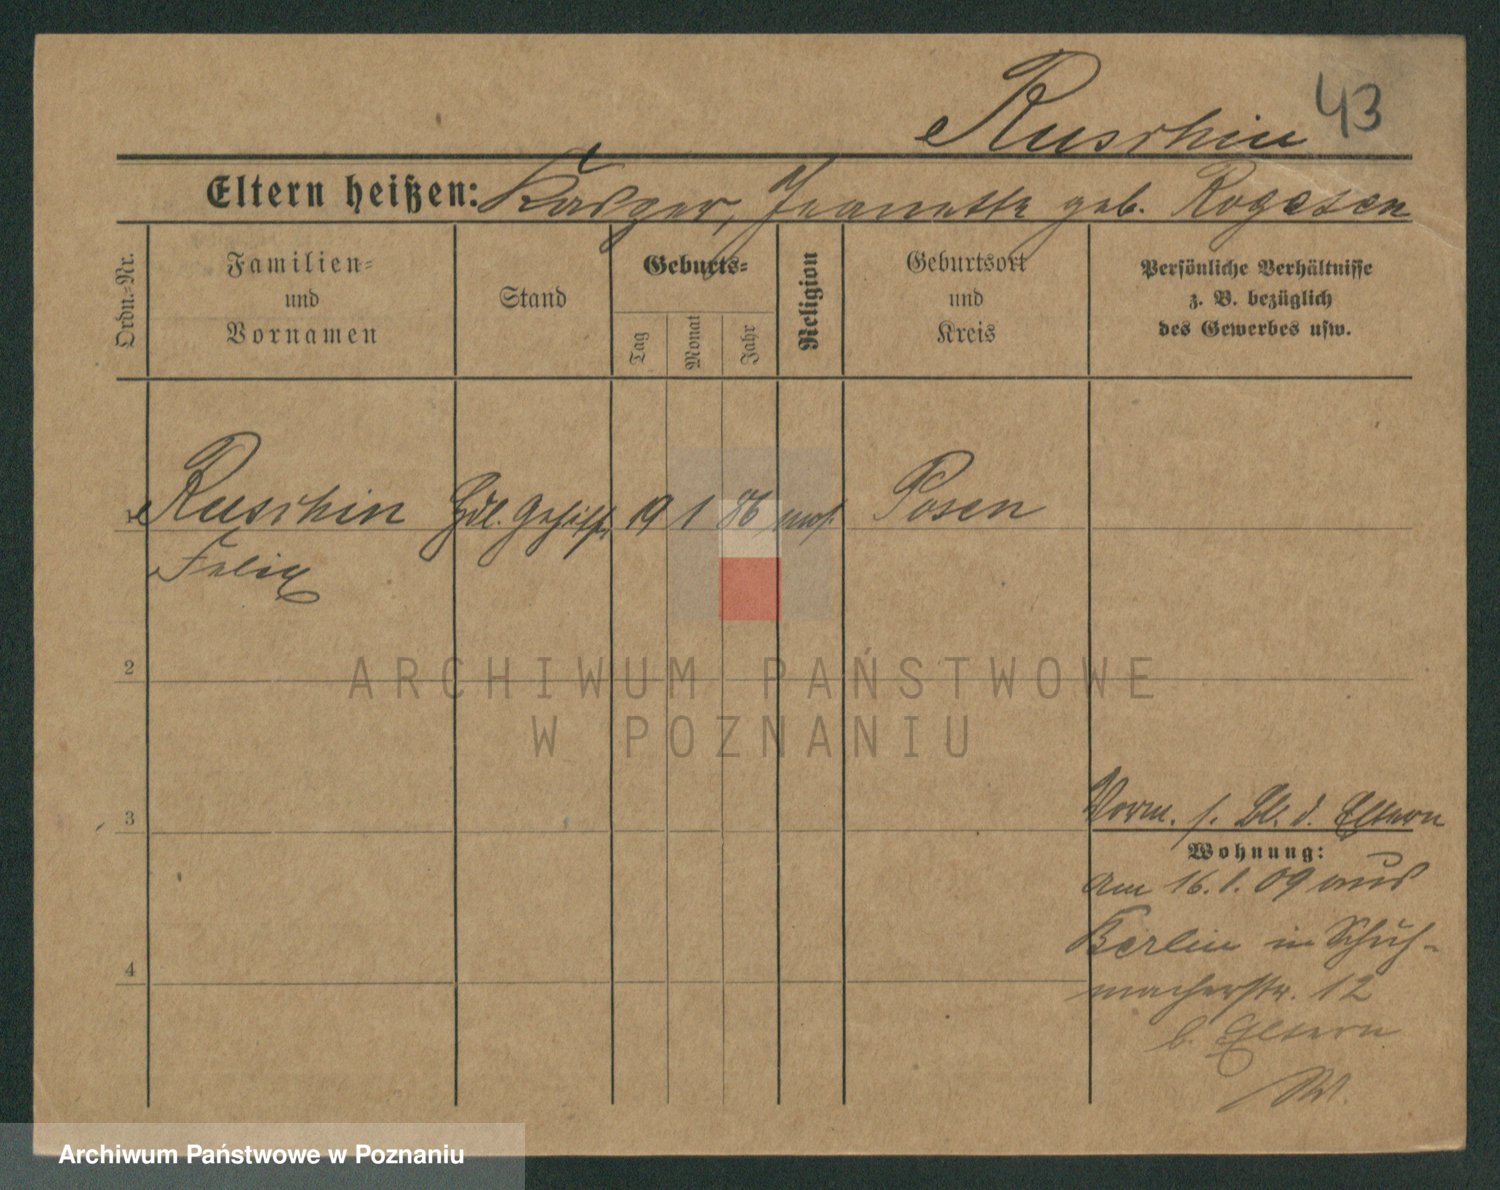 Ruschin 43
Eltern heißen: Kasper, Jeanette geb. Rogasen
Ordn.-Nr.
Familien-
und
Vornamen
Stand
Geburts-
Tag
Monat
Jahr
Religion
Geburtsort
und
Kreis
Persönliche Verhältnisse
z. B. bezüglich
des Gewerbes usw.
1 Ruschin Hdl. Gehilfe 19 1 86 mos. Posen
Felix
2
3
4
Vorm. s. Bl. d. Eltern
Wohnung:
Am 16.1.09 aus
Berlin in Schuh-
macherstr. 12
b. Eltern
ARCHIWUM PAŃSTWOWE
W POZNANIU
Archiwum Państwowe w Poznaniu